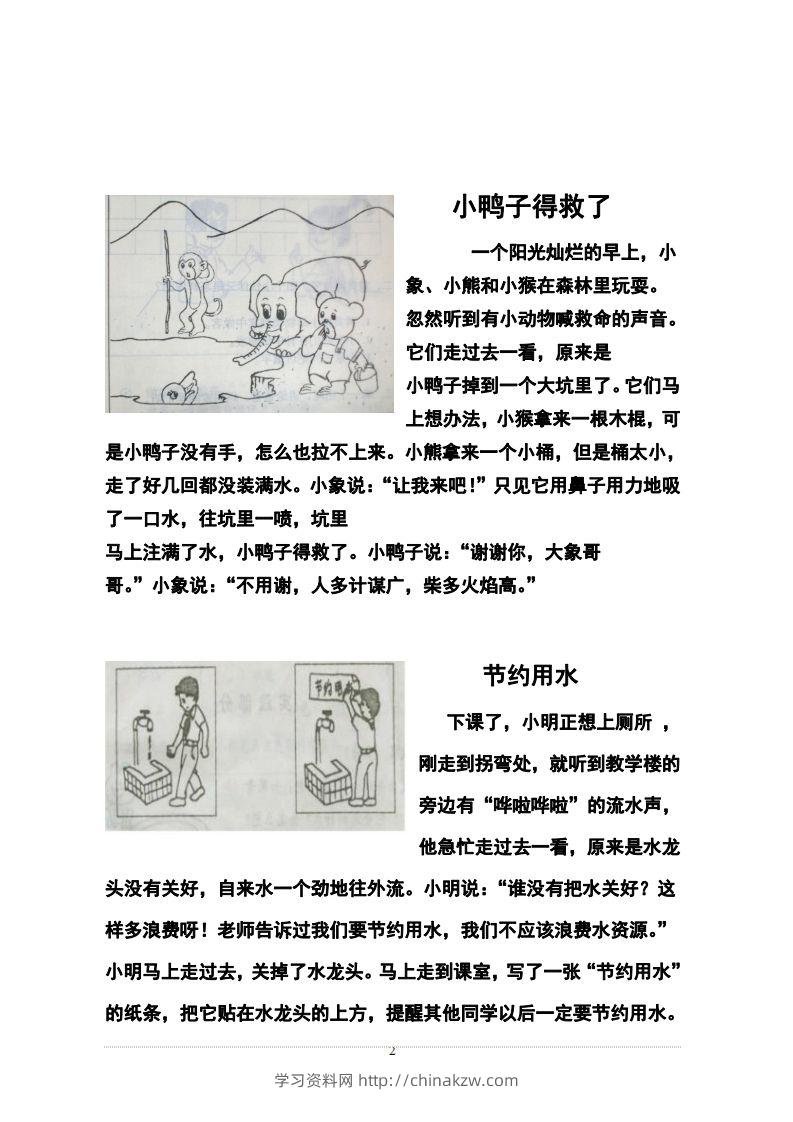 小鸭子得救了
一个阳光灿烂的早上，小
象、小熊和小猴在森林里玩耍。
忽然听到有小动物喊救命的声音。
它们走过去一看，原来是
小鸭子掉到一个大坑里了。它们马
上想办法，小猴拿来一根木棍，可
是小鸭子没有手，怎么也拉不上来。小熊拿来一个小桶，但是桶太小，
走了好几回都没装满水。小象说：“让我来吧！”只见它用鼻子用力地吸
了一口水，往坑里一喷，坑里
马上注满了水，小鸭子得救了。小鸭子说：“谢谢你，大象哥
哥。”小象说：“不用谢，人多计谋广，柴多火焰高。”
节约用水
节约用水
下课了，小明正想上厕所 ，
刚走到拐弯处，就听到教学楼的
旁边有“哗啦哗啦”的流水声，
他急忙走过去一看，原来是水龙
头没有关好，自来水一个劲地往外流。小明说：“谁没有把水关好？这
样多浪费呀！老师告诉过我们要节约用水，我们不应该浪费水资源。”
小明马上走过去，关掉了水龙头。马上走到课室，写了一张“节约用水”
的纸条，把它贴在水龙头的上方，提醒其他同学以后一定要节约用水。
2
学习资料网 http://chinakzw.com